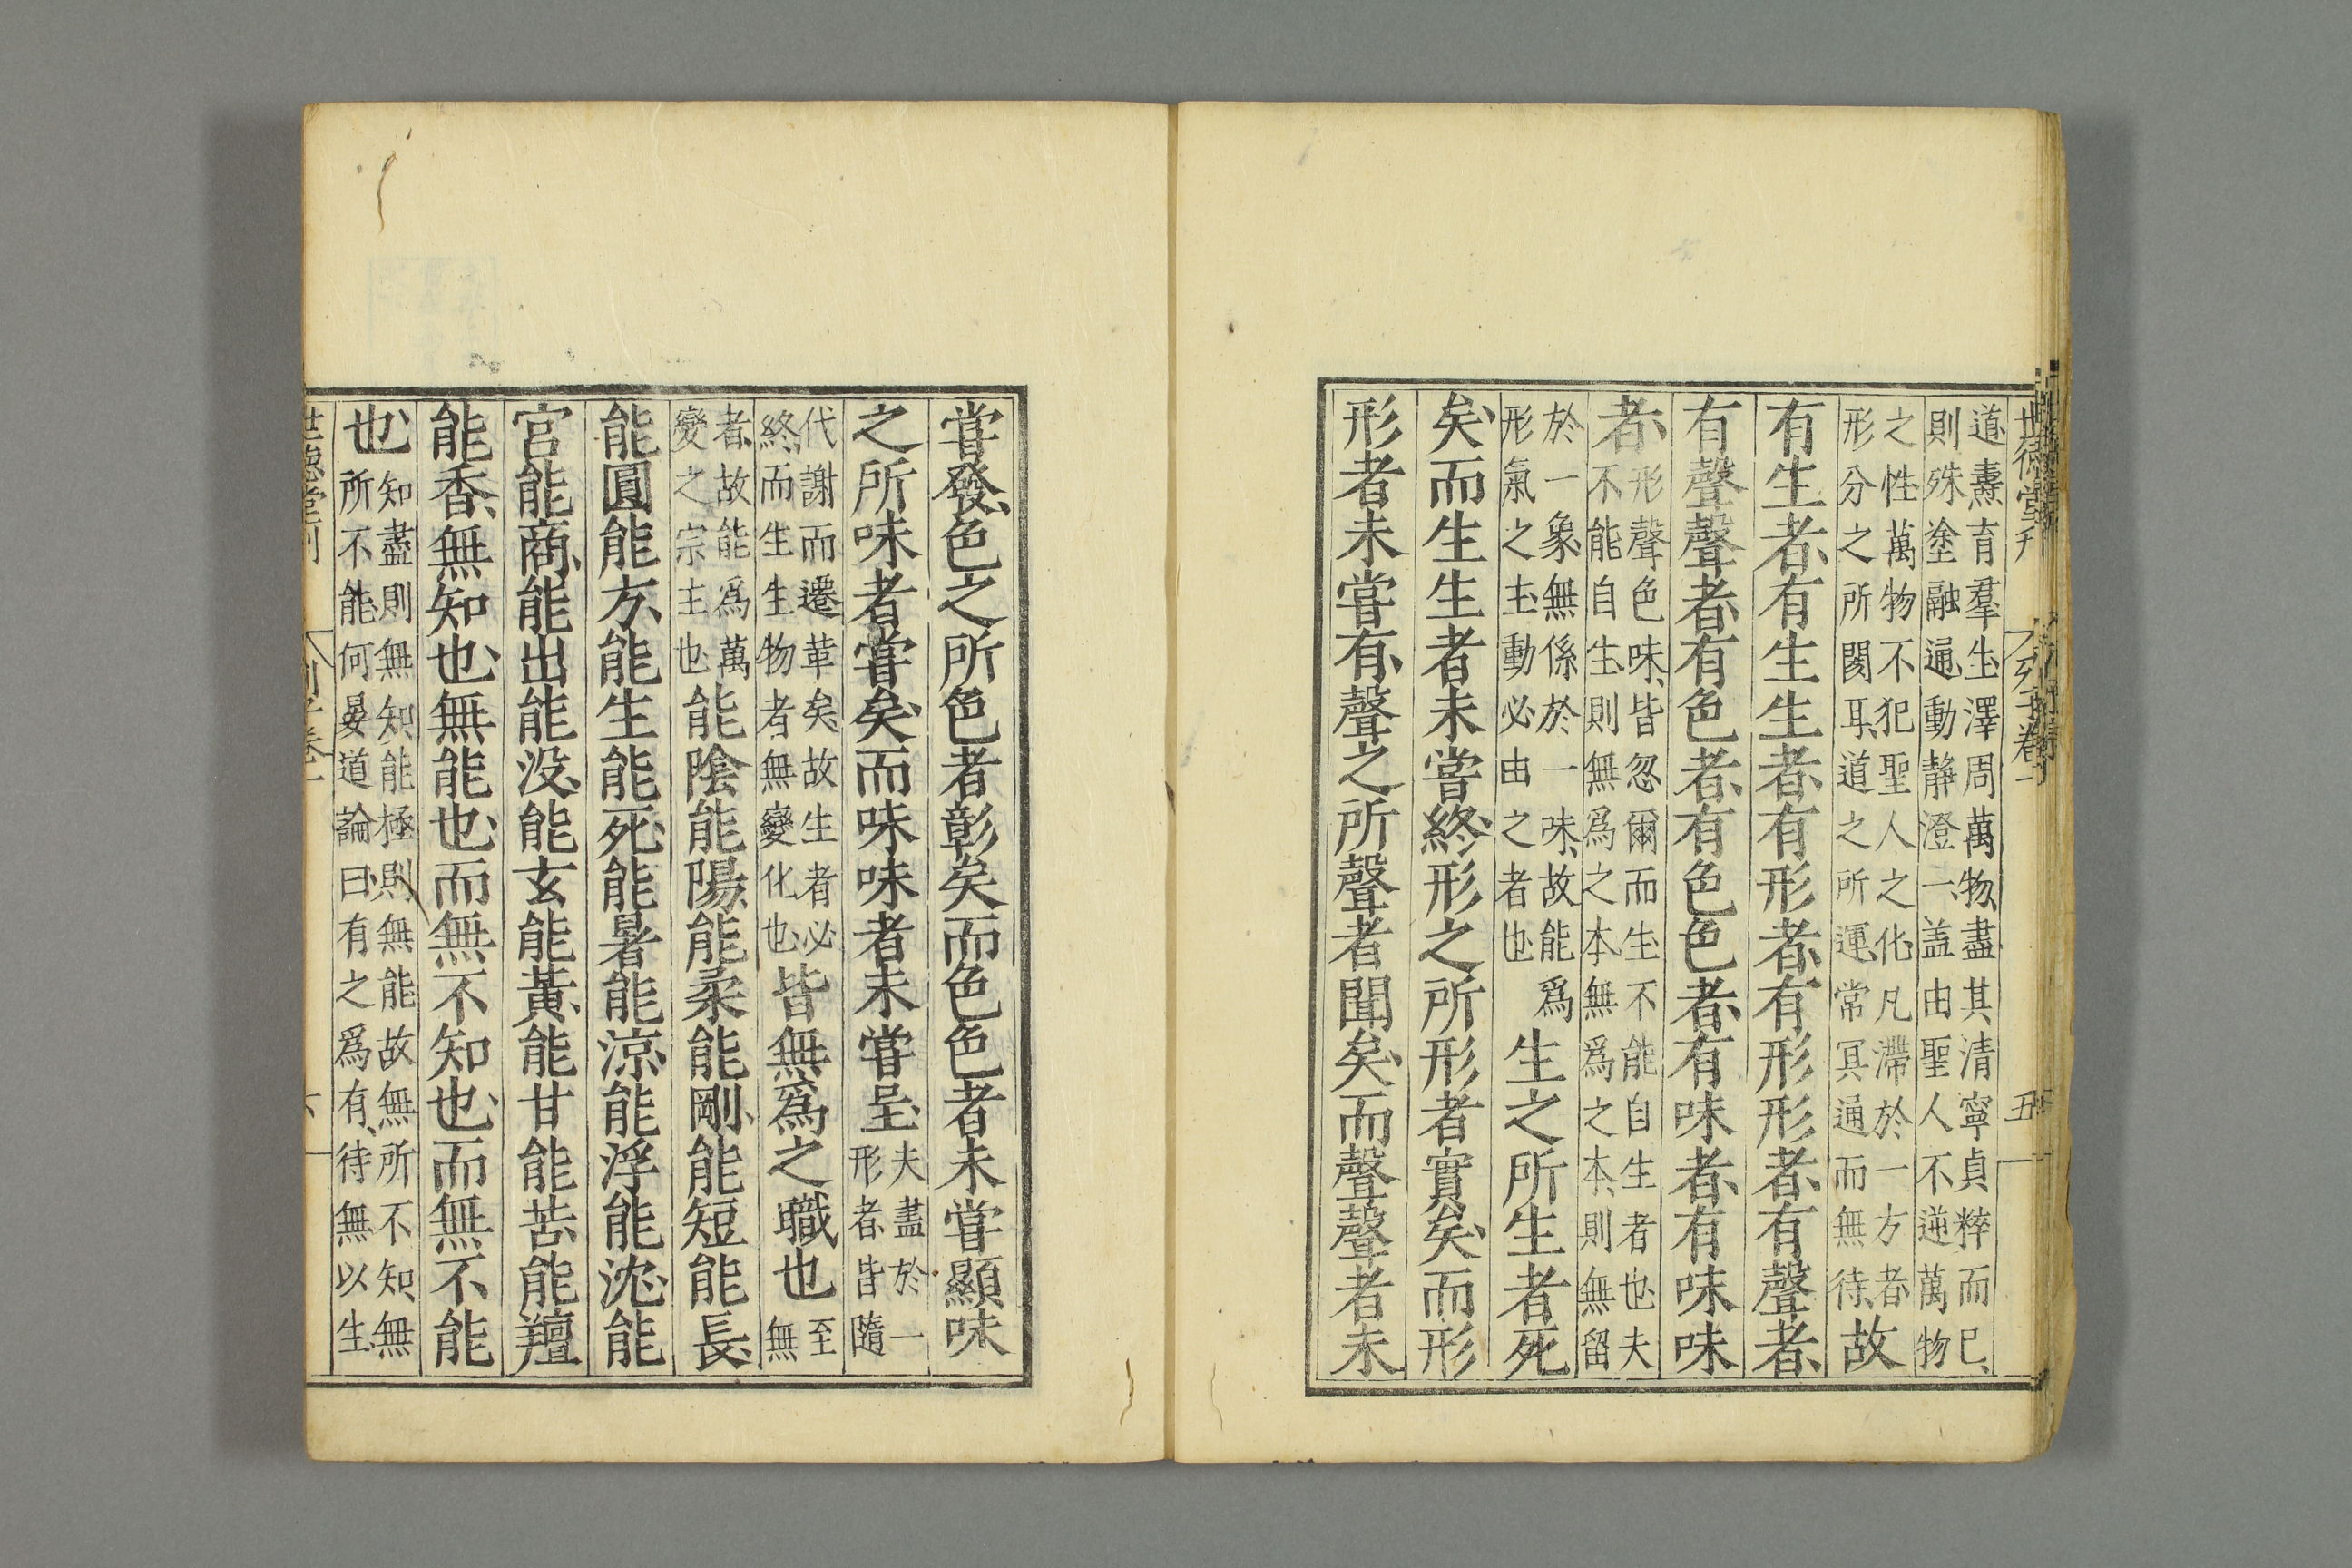 世德堂刊 列子卷一 五
道燾育羣生澤周萬物盡其清寧貞粹而已
則殊塗融通動靜澄一盖由聖人不逆萬物
之性萬物不犯聖人之化凡滯於一方者
形分之所閡耳道之所運常冥通而無待
故
有生者有生生者有形者有形形者有聲者
有聲聲者有色者有色色者有味者有味味
者
形聲色味皆忽爾而生不能自生者也夫
不能自生則無爲之本無爲之本則無留
於一象無係於一味故能爲
形氣之主動必由之者也
生之所生者死
矣而生生者未嘗終形之所形者實矣而形
形者未嘗有聲之所聲者聞矣而聲聲者未
嘗發色之所色者彰矣而色色者未嘗顯味
之所味者嘗矣而味味者未嘗呈
夫盡於一
形者皆隨
代謝而遷革矣故生者必
終而生生物者無變化也
皆無爲之職也
至
無
者故能爲萬
變之宗主也
能陰能陽能柔能剛能短能長
能圓能方能生能死能暑能涼能浮能沈能
宮能商能出能没能玄能黃能甘能苦能羶
能香無知也無能也而無不知也而無不能
也
知盡則無知能極則無能故無所不知無
所不能何晏道論曰有之爲有待無以生
世德堂刊 列子卷一 六